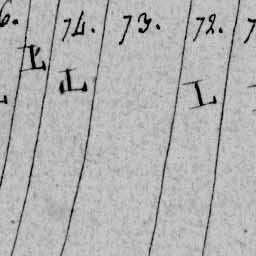 6. 74. 73. 72. 7
L
L L
L